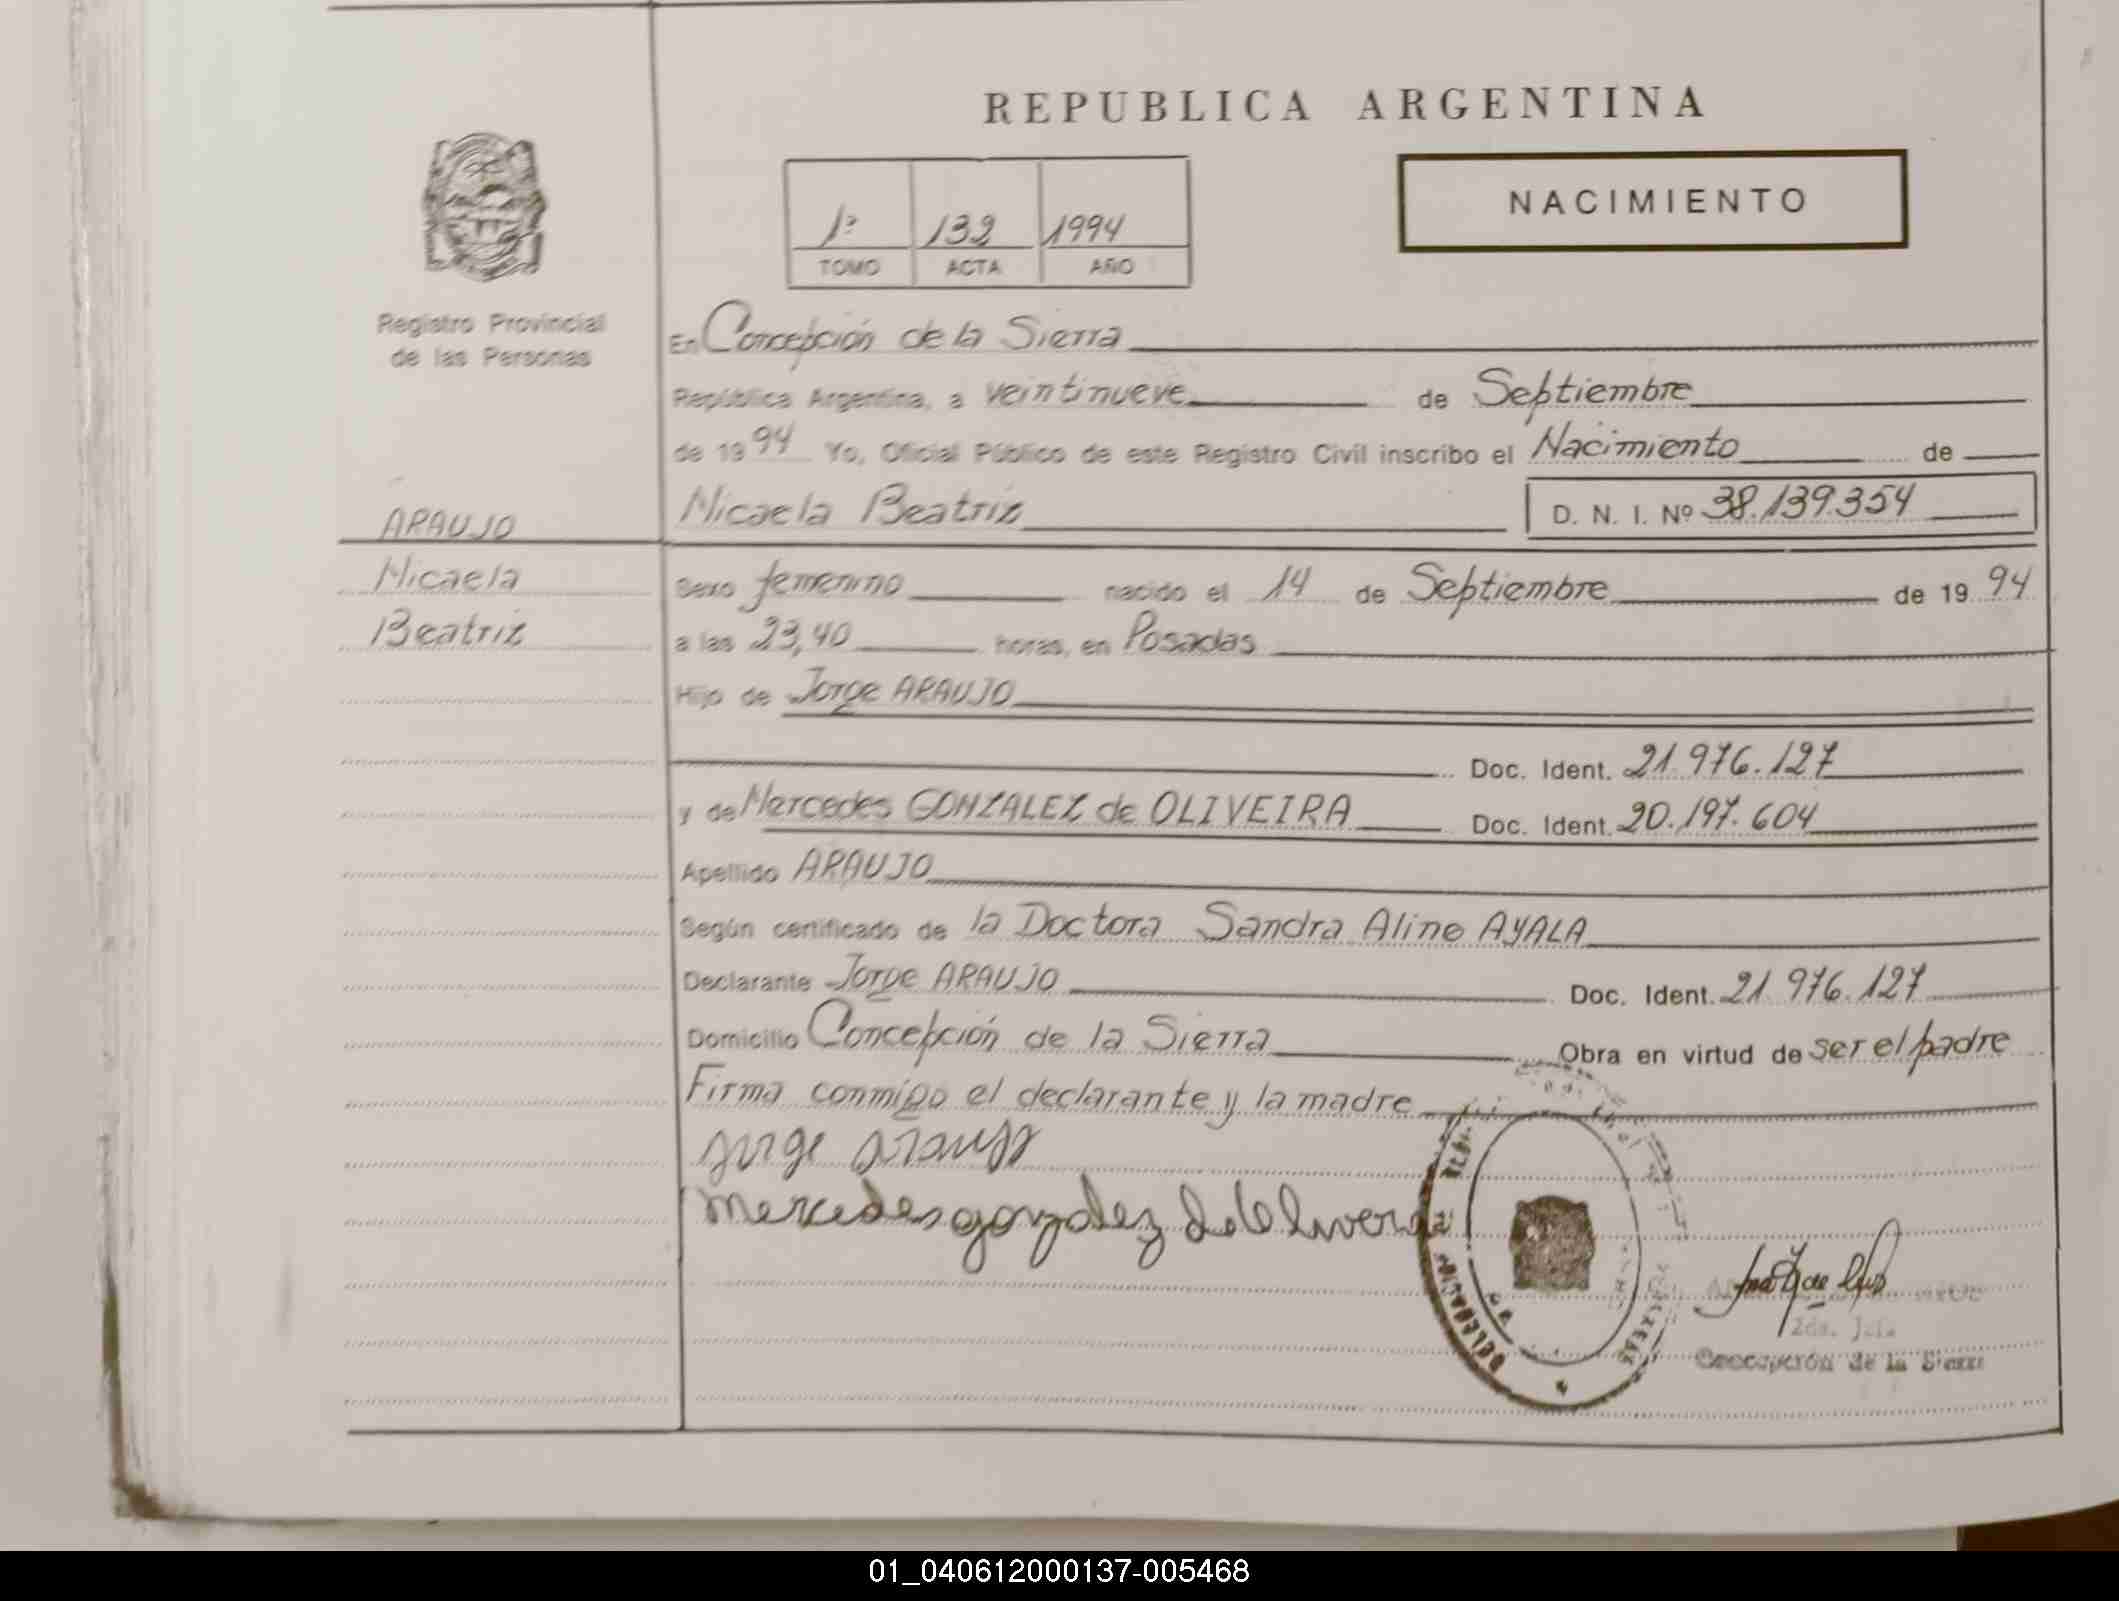 REPUBLICA ARGENTINA
NACIMIENTO
1º 132 1994
TOMO ACTA AÑO
Registro Provincial
de las Personas
En Concepción de la Sierra
República Argentina, a veintinueve de Septiembre
de 1994 Yo, Oficial Público de este Registro Civil inscribo el Nacimiento de
Micaela Beatriz D. N. I. Nº 38.139.354
ARAUJO
Micaela
Beatriz
Sexo femenino nacido el 14 de Septiembre de 1994
a las 23,40 horas, en Posadas
Hijo de Jorge ARAUJO
Doc. Ident. 21.976.127
y de Mercedes GONZALEZ de OLIVEIRA Doc. Ident. 20.197.604
Apellido ARAUJO
Según certificado de la Doctora Sandra Aline AYALA
Declarante Jorge ARAUJO Doc. Ident. 21.976.127
Domicilio Concepción de la Sierra Obra en virtud de ser el padre
Firma conmigo el declarante y la madre
Jorge Araujo
mercedes gonzalez de Oliveira
DELEGACION
2da. Jefa
Concepción de la Sierra
01_040612000137-005468